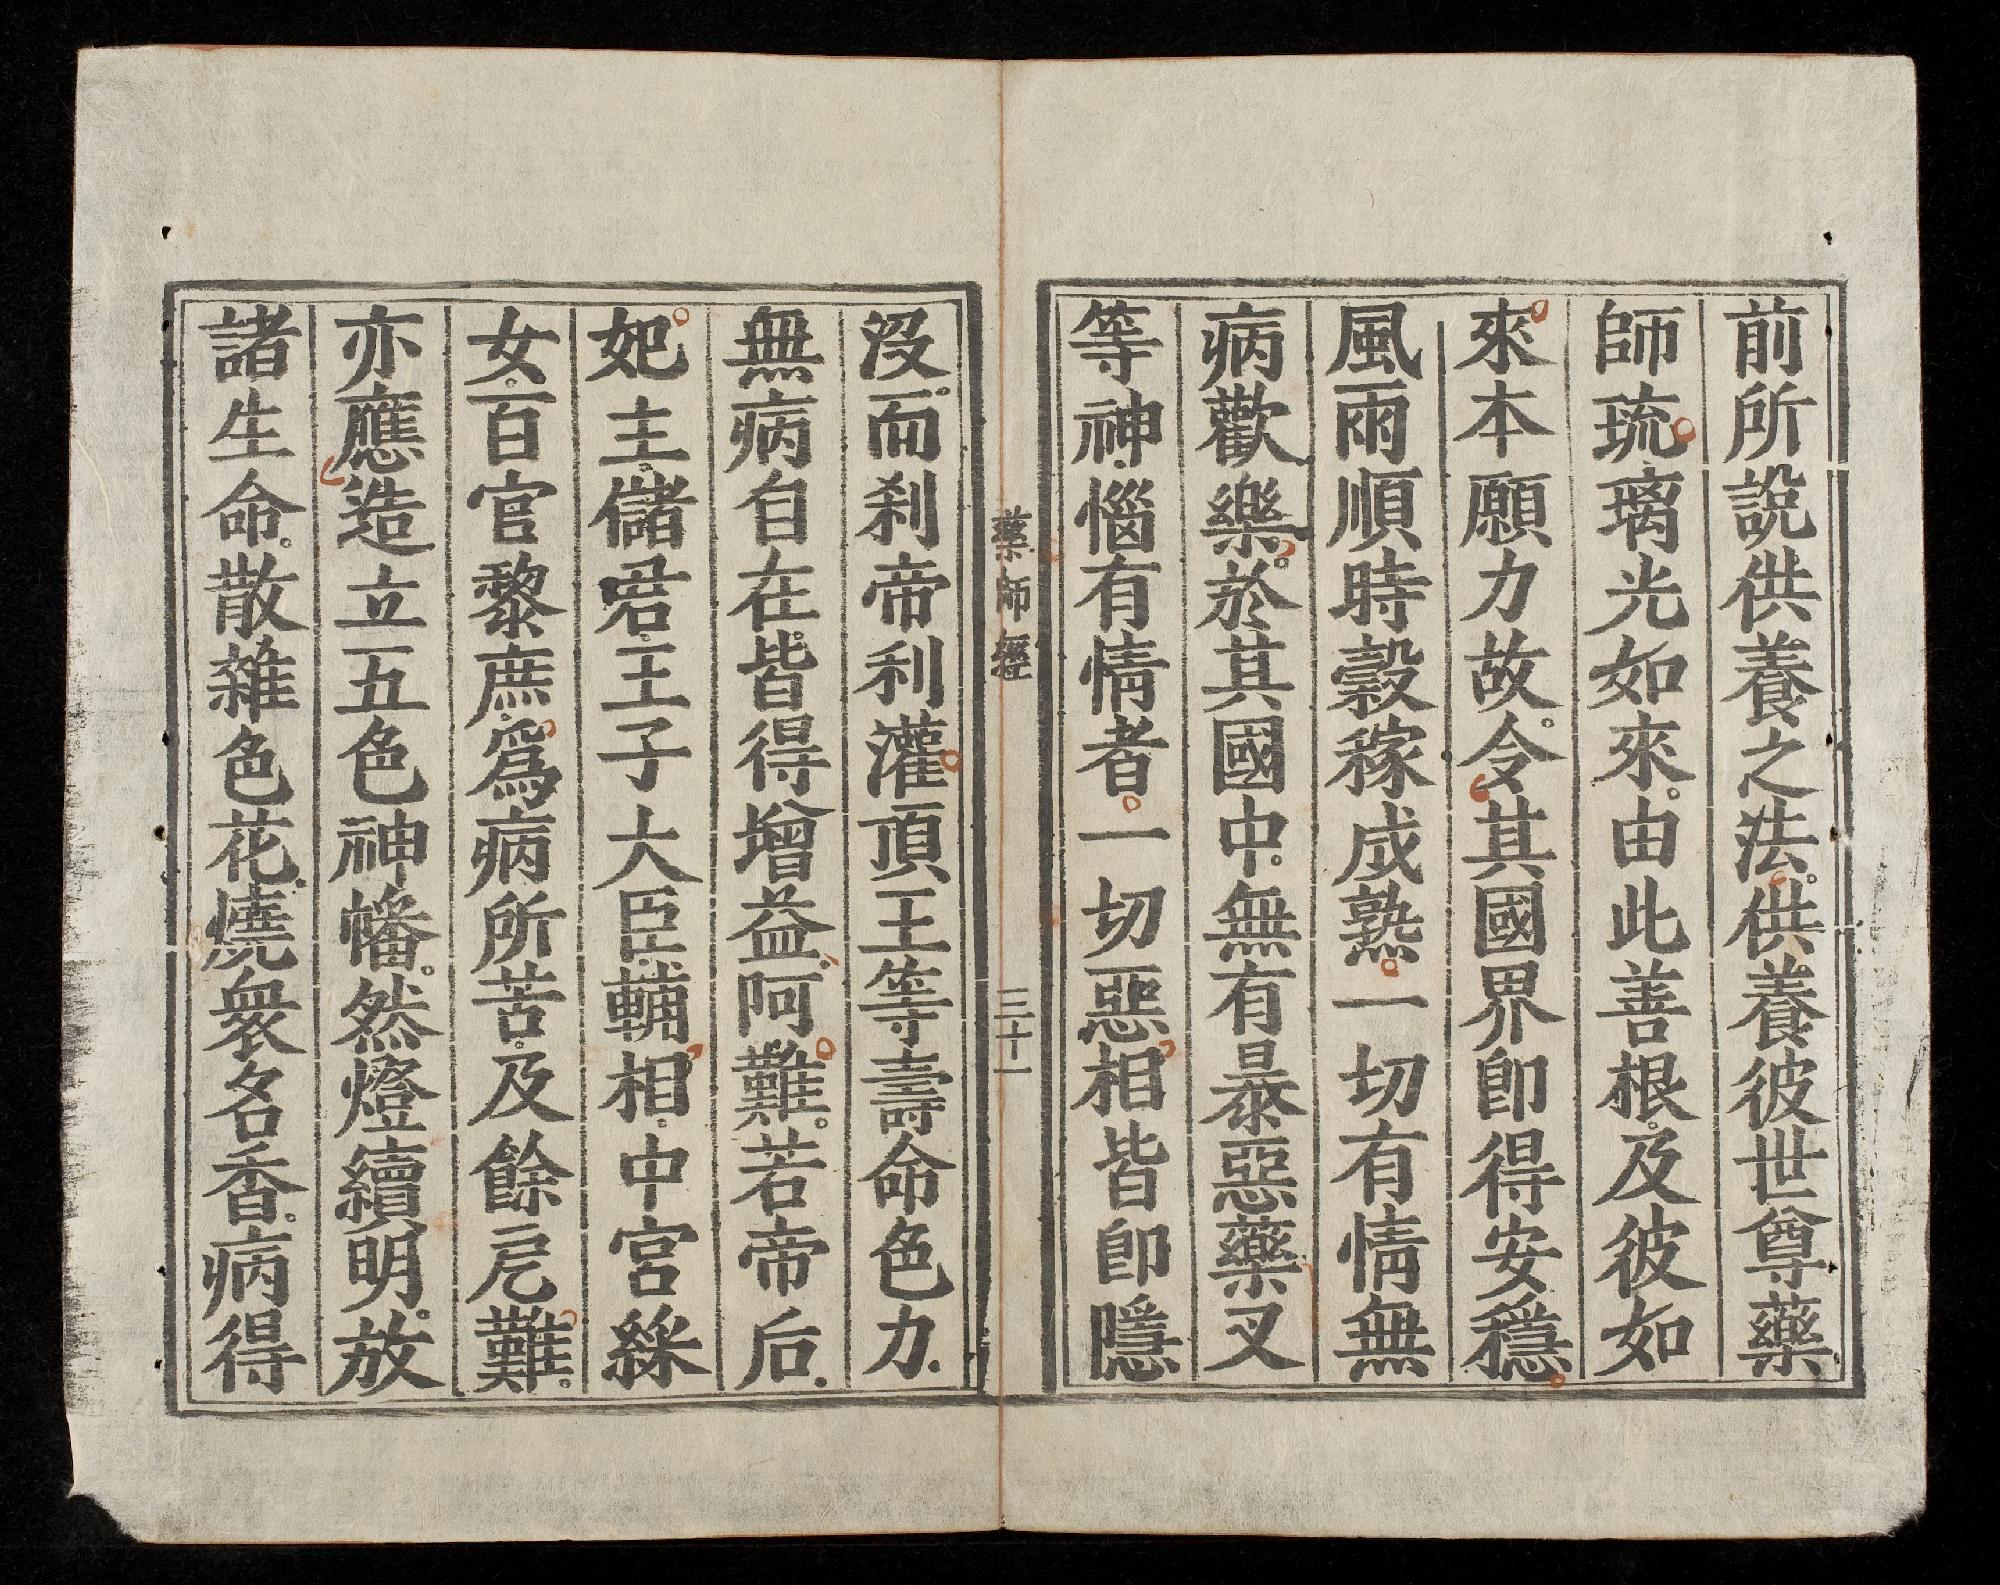 前所說供養之法。供養彼世尊藥
師琉璃光如來。由此善根。及彼如
來本願力故。令其國界即得安穩
風雨順時穀稼成熟一切有情無
病歡樂。於其國中。無有暴惡藥叉
等神。惱有情者。一切惡相皆即隱
藥師經
三十一
沒。而剎帝利灌頂王等壽命色力。
無病自在。皆得增益。阿難。若帝后。
妃主。儲君。王子大臣輔相。中宮綵
女。百官黎庶。爲病所苦。及餘戹難。
亦應造立五色神幡。然燈續明。放
諸生命。散雜色花。燒衆名香。病得